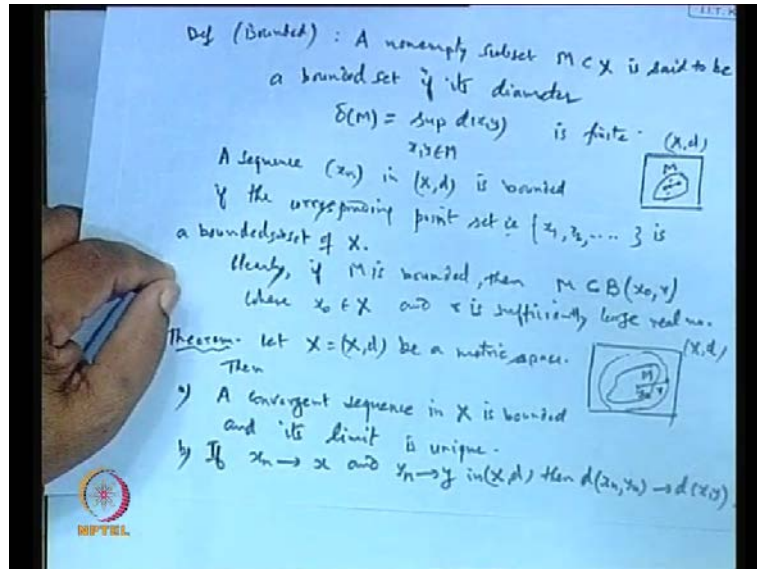 I.I.T. K
Def (Bounded) : A nonempty subset M ⊂ X is said to be
a bounded set if its diameter
δ(M) = sup d(x,y) is finite.
x,y∈M
(X,d)
M
A sequence (xn) in (X,d) is bounded
if the corresponding point set ie {x1, x2, .....} is
a bounded subset of X.
Clearly, if M is bounded, then M ⊂ B(x0, r)
where x0 ∈ X and r is sufficiently large real no.
Theorem. Let X = (X,d) be a metric space.
(X,d)
M
x0 r
Then
a) A convergent sequence in X is bounded
and its limit is unique.
b) If xn → x and yn → y in (X,d) then d(xn, yn) → d(x,y).
NPTEL